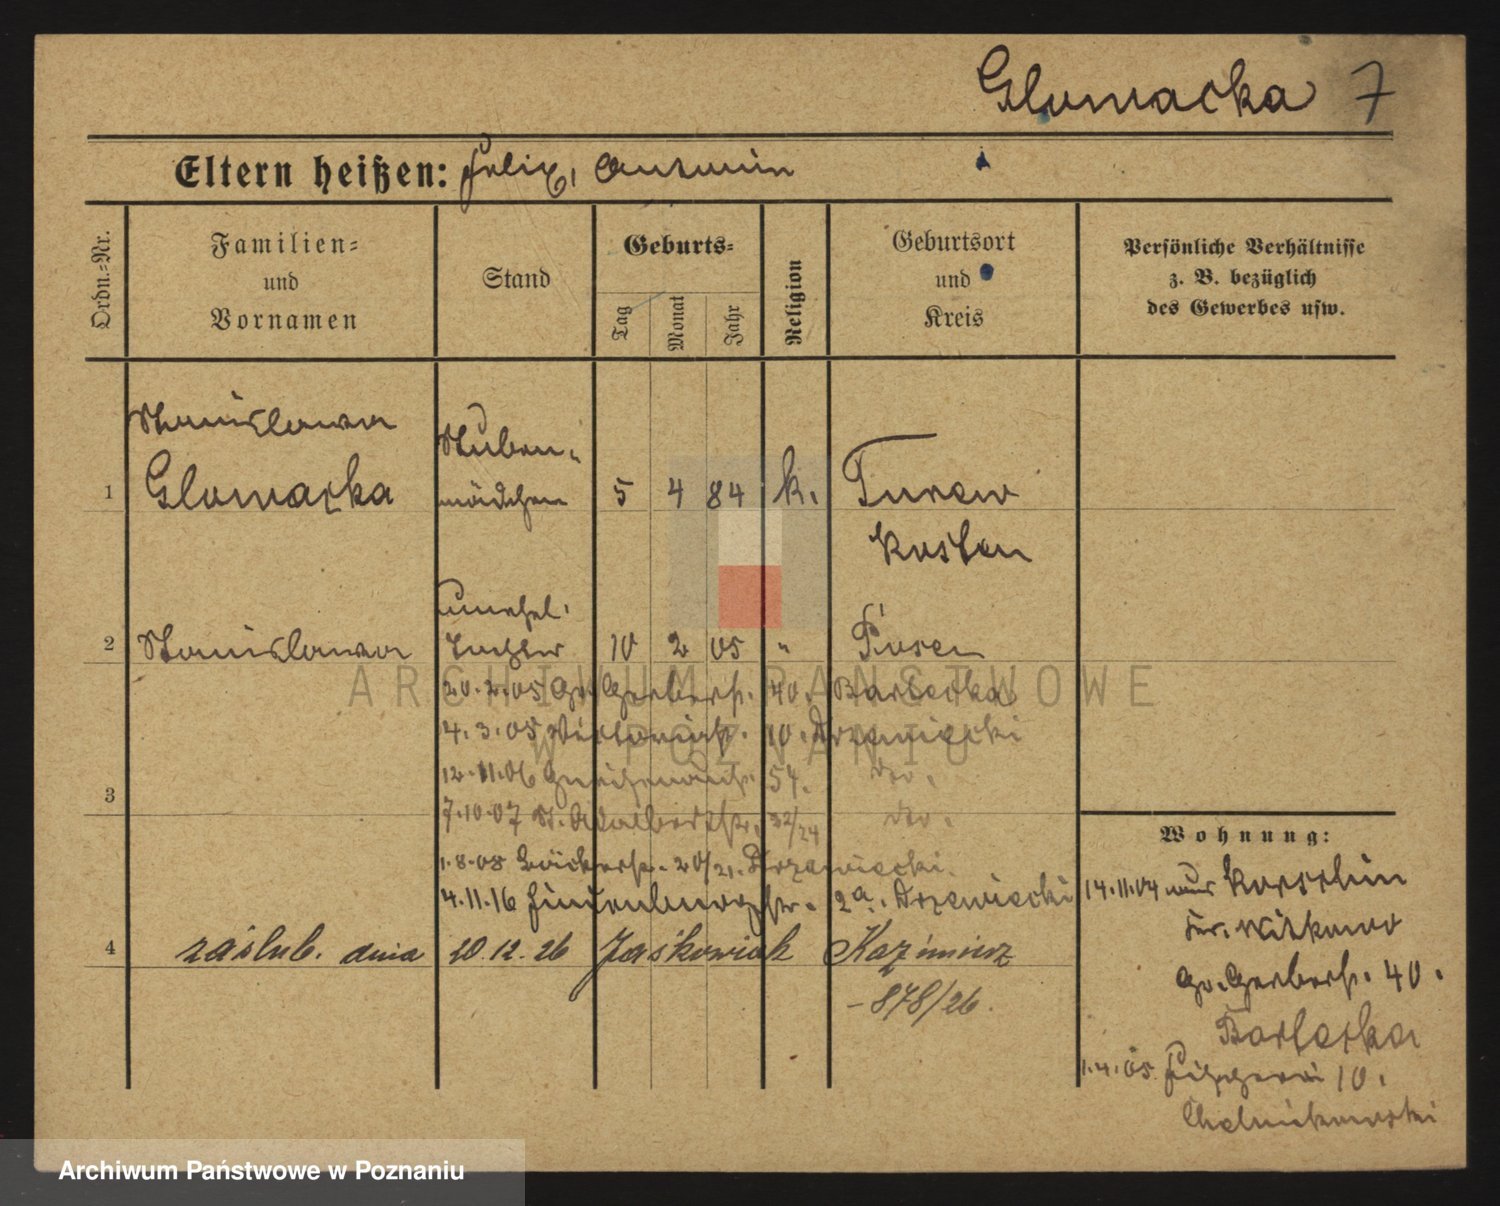 Glowacka 7
Eltern heißen: Felix, Antonin
Ordn.=Nr.
Familien=
und
Vornamen
Stand
Geburts=
Tag
Monat
Jahr
Religion
Geburtsort
und
Kreis
Persönliche Verhältnisse
z. B. bezüglich
des Gewerbes usw.
Stanislawa
Glowacka
Stuben-
mädchen
1
5 4 84 k. Turew
Kosten
unehel.
2 Stanislawa Tochter 10 2 05 " Posen
20.2.05 Gr. Gerberstr. 40. Bartecka
4.3.05 10. Drzewiecki
12.11.06 54. do.
3
7.10.07 St. Adalbertstr. 32/24 do.
1.8.08 Bäckerstr. 20/21. Drzewiecki.
4.11.16 2a. Drzewiecki
4 zaślub. dnia 20.12.26 Jaśkowiak Kazimierz
- 878/26.
Wohnung:
14.11.04 aus
Kr. Witkowo
Gr. Gerberstr. 40.
Bartecka
1.4.05 10.
Chelmikowski
ARCHIWUM PAŃSTWOWE
W POZNANIU
Archiwum Państwowe w Poznaniu